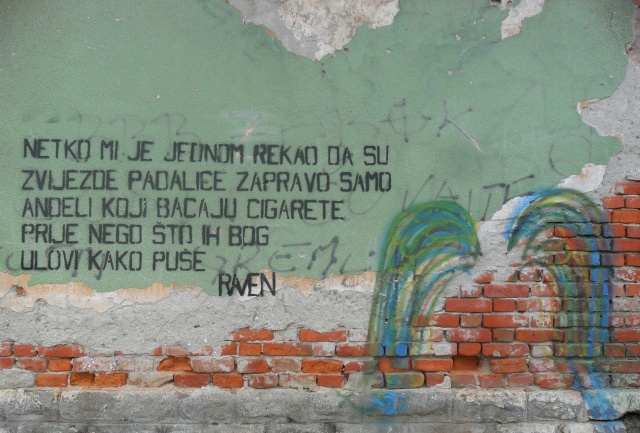 NETKO MI JE JEDNOM REKAO DA SU
ZVIJEZDE PADALICE ZAPRAVO SAMO
ANĐELI KOJI BACAJU CIGARETE
PRIJE NEGO ŠTO IH BOG
ULOVI KAKO PUŠE
RAVEN